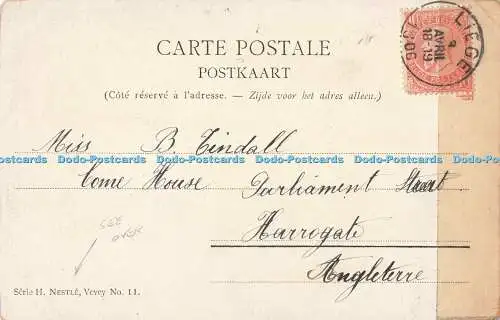 CARTE POSTALE
POSTKAART
(Côté réservé à l'adresse. — Zijde voor het adres alleen.)
LIÈGE
AVRIL
18-19
1906
Miss B. Tindall
Dodo-Postcards Dodo-Postcards Dodo-Postcards Dodo-Postcards Dodo-Postcards Dodo-Postcards
Come House Parliament Street
Harrogate
Angleterre
SEE
OVER
Série H. NESTLÉ, Vevey No. 11.